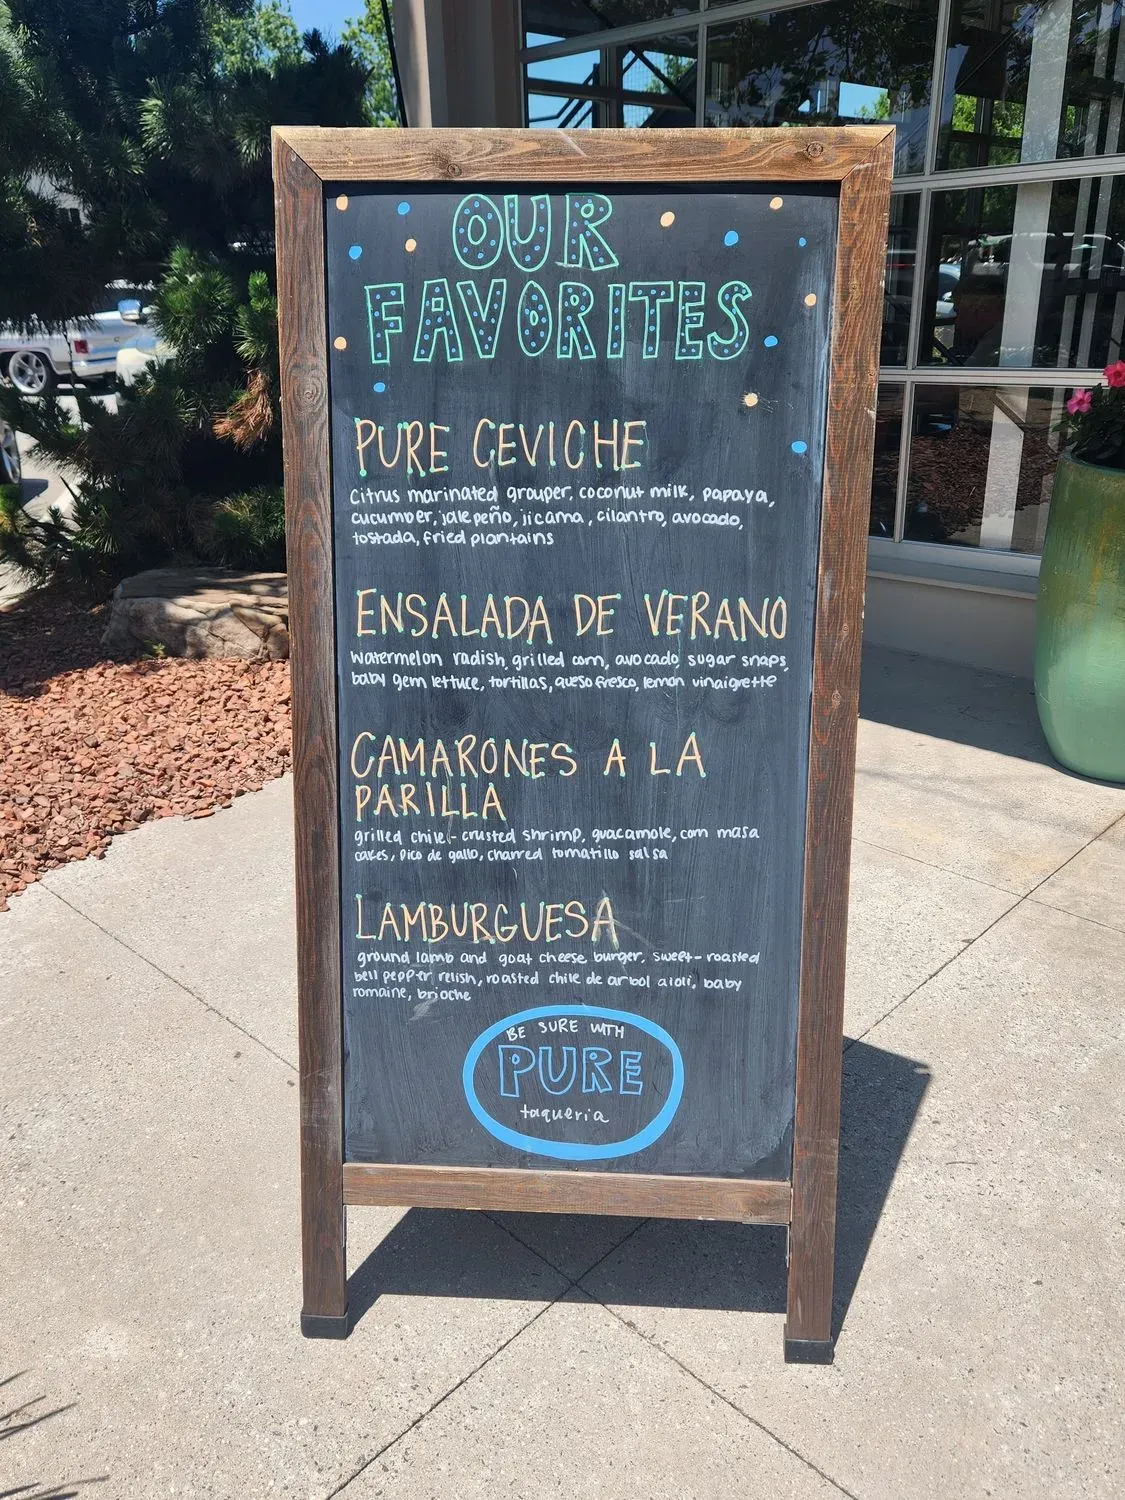 OUR
FAVORITES
PURE CEVICHE
citrus marinated grouper, coconut milk, papaya,
cucumber, jalepeño, jicama, cilantro, avocado,
tostada, fried plantains
ENSALADA DE VERANO
watermelon radish, grilled corn, avocado, sugar snaps,
baby gem lettuce, tortillas, queso fresco, lemon vinaigrette
CAMARONES A LA
PARILLA
grilled chile-crusted shrimp, guacamole, corn masa
cakes, pico de gallo, charred tomatillo salsa
LAMBURGUESA
ground lamb and goat cheese burger, sweet-roasted
bell pepper relish, roasted chile de arbol aioli, baby
romaine, brioche
BE SURE WITH
PURE
taqueria